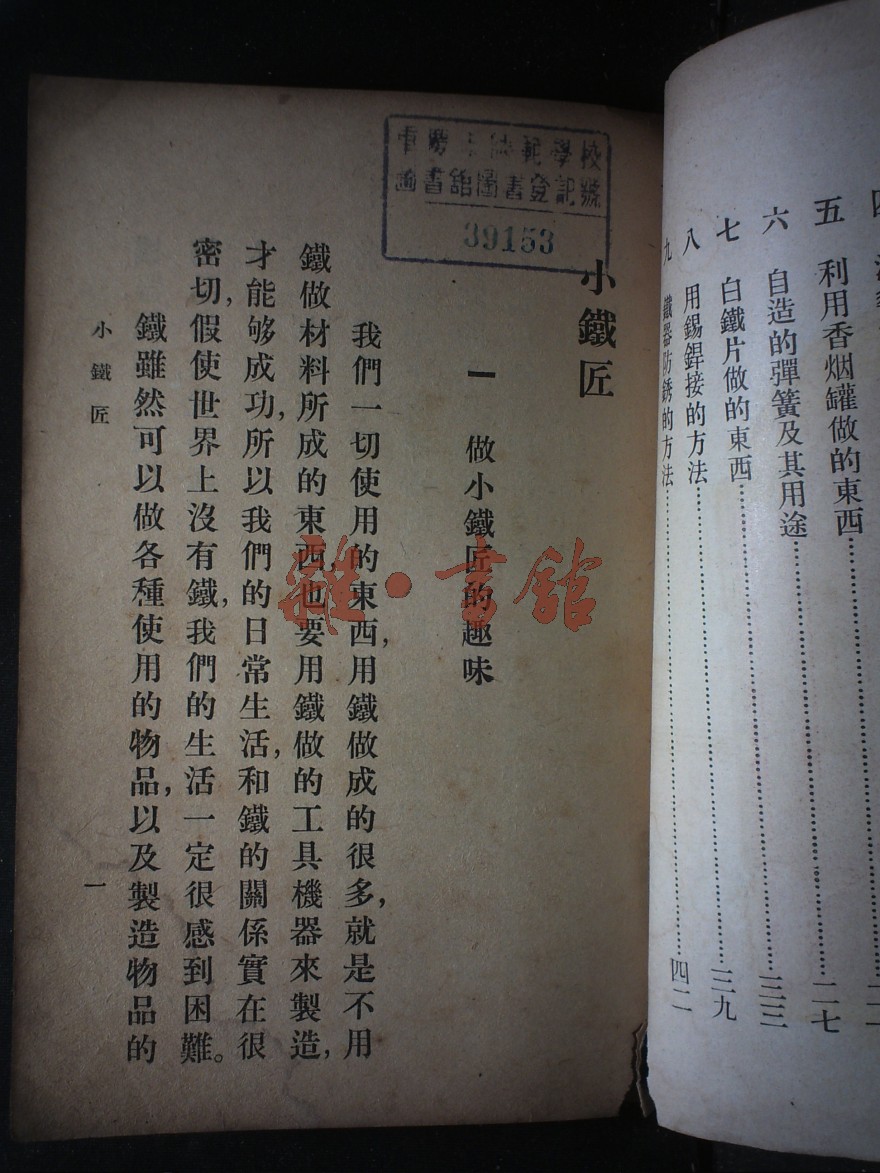 五　利用香烟罐做的東西……二七
六　自造的彈簧及其用途……三三
七　白鐵片做的東西……三九
八　用錫銲接的方法……四二
九　鐵器防銹的方法……
學校
書館圖書登記號
39153
小鐵匠
一　做小鐵匠的趣味
我們一切使用的東西，用鐵做成的很多，就是不用
鐵做材料所成的東西，也要用鐵做的工具機器來製造，
才能够成功，所以我們的日常生活，和鐵的關係實在很
密切，假使世界上沒有鐵，我們的生活一定很感到困難。
鐵雖然可以做各種使用的物品，以及製造物品的
小鐵匠
一
雜·書館